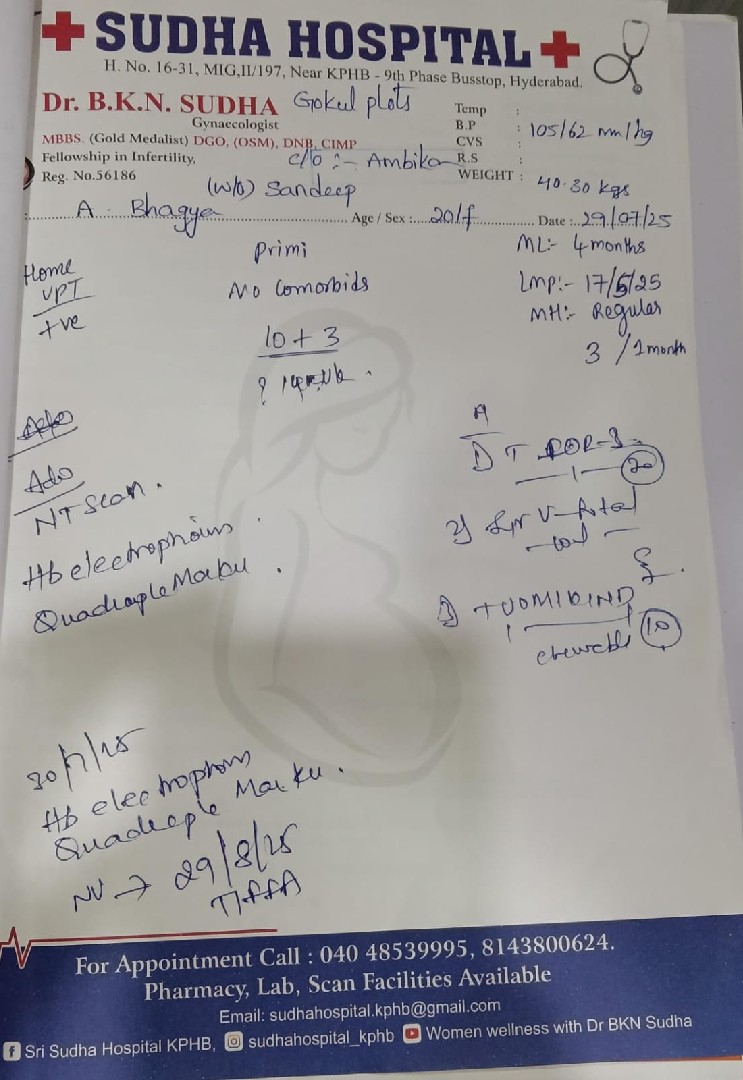 SUDHA HOSPITAL
H. No. 16-31, MIG,II/197, Near KPHB - 9th Phase Busstop, Hyderabad.
Dr. B.K.N. SUDHA
Gynaecologist
MBBS. (Gold Medalist) DGO, (OSM), DNB, CIMP
Fellowship in Infertility,
Reg. No.56186
Gokul plots
c/o :- Ambika
(w/o) Sandeep
Temp :
B.P : 105/62 mm/hg
CVS :
R.S :
WEIGHT : 40.30 kgs
A. Bhagya Age / Sex : 20/f Date : 29/07/25
Home
UPT
+ve
Primi
No Comorbids
10 + 3
?
ML:- 4 months
Lmp:- 17/5/25
MH:- Regular
3 / 1 month
Ado
NT Scan.
Hb electrophoris
Quadraple Marku.
A
1) T
20
2) Syr V-fotal
3) T VOMIKIND
chewable 10
30/7/25
Hb electroprom
Quadruple Marku.
NV → 29/8/25
TIFFA
For Appointment Call : 040 48539995, 8143800624.
Pharmacy, Lab, Scan Facilities Available
Email: sudhahospital.kphb@gmail.com
Sri Sudha Hospital KPHB, sudhahospital_kphb Women wellness with Dr BKN Sudha